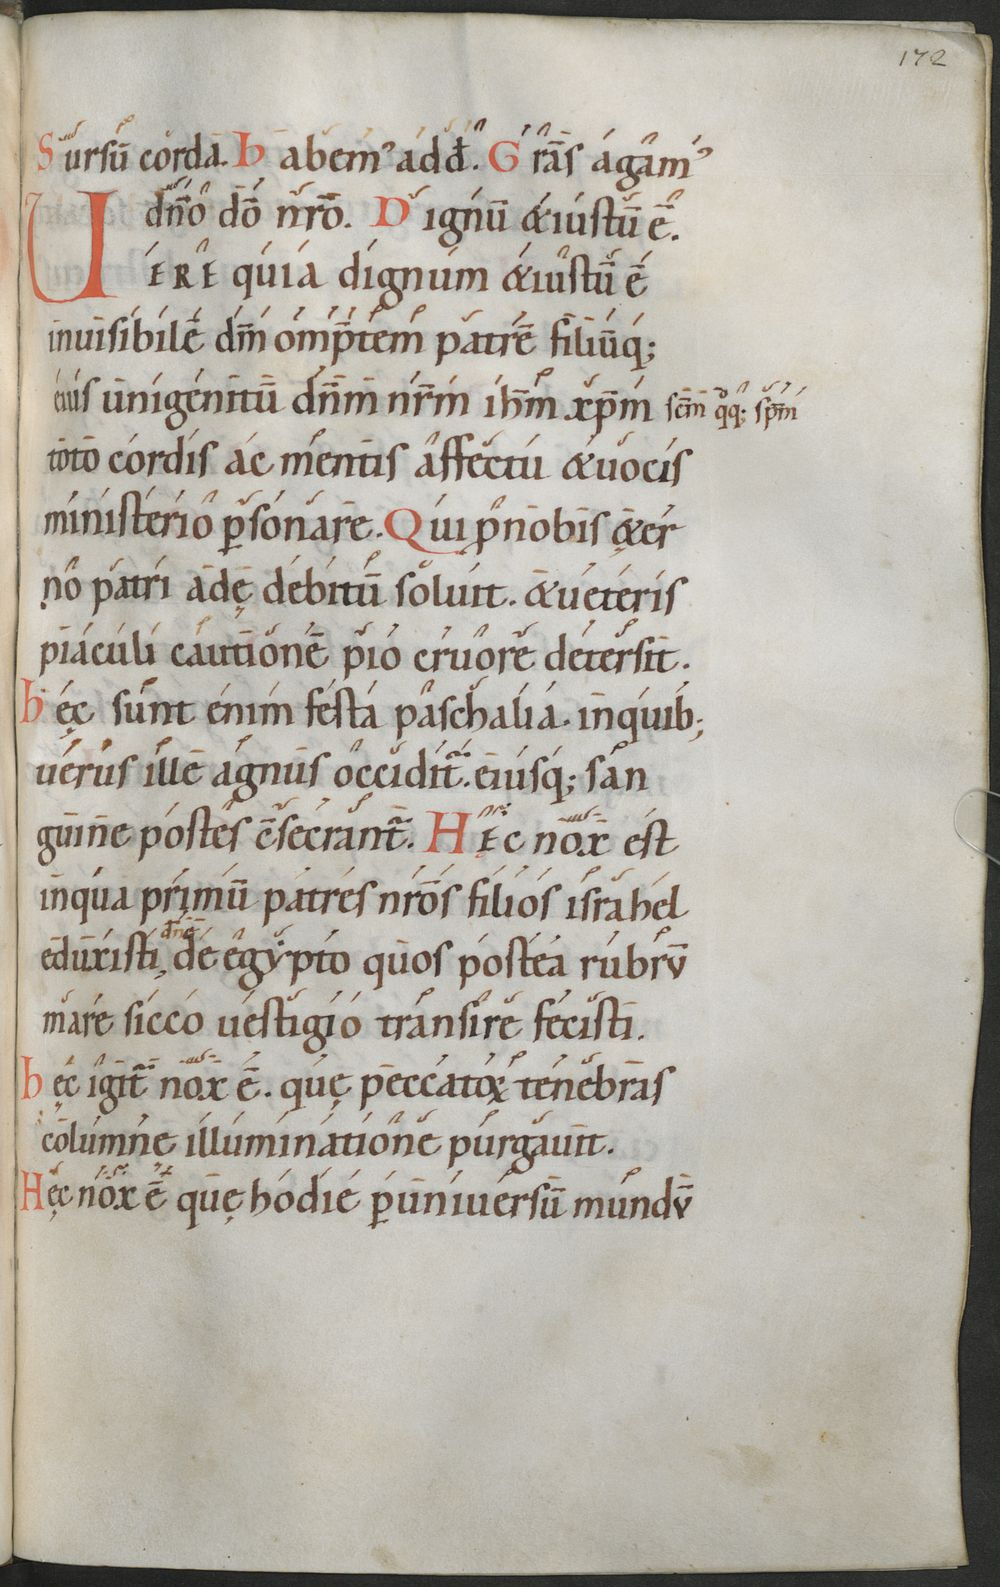 172
Sursū corda. Habem᾽ ad dñ. Grās agam᾽
dño dō nrō. Dignū & iustū ē.
UERE quia dignum & iustū ē
inuisibilē dm̄ omp̄tem patrē filiūq;
eius unigenitū dn̄m nr̄m ihm̄ xp̄m scm̄ qq; spm̄
toto cordis ac mentis affectu & uocis
ministerio ꝑsonare. Qui ꝓ nobis ę&er
no patri adę debitū soluit. & ueteris
piaculi cautionē pio cruorē detersit.
hęc sunt enim festa paschalia. in quib;
uerus ille agnus occidit᷑. eiusq; san
guine postes c̄secrant᷑. HĘC nox est
in qua primū patres nrōs filios israhel
eduxisti, dn̄e de egypto quos postea rubrū
mare sicco uestigio transire fecisti.
hęc igit᷑ nox ē. quę peccatoꝝ tenebras
columne illuminatione purgauit.
Hęc nox ē quę hodie ꝑ uniuersū mundū